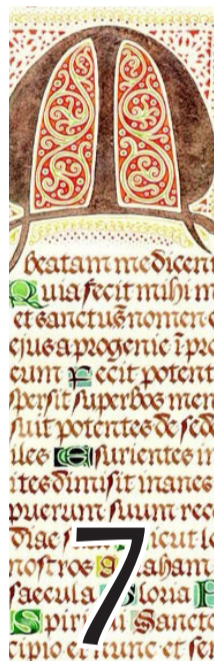 M
beatam me dicent
Quia fecit mihi m
et sanctuʒ nomen e
ejus a progenie ī pro
eum Fecit potent
spersit superbos men
suit potentes de sed
iles Esurientes im
ites dimisit inanes
puerum suum rec
diae s icut lo
nostros aham
saecula loria P
Spiri Sancto
cipio et nunc et sem
7